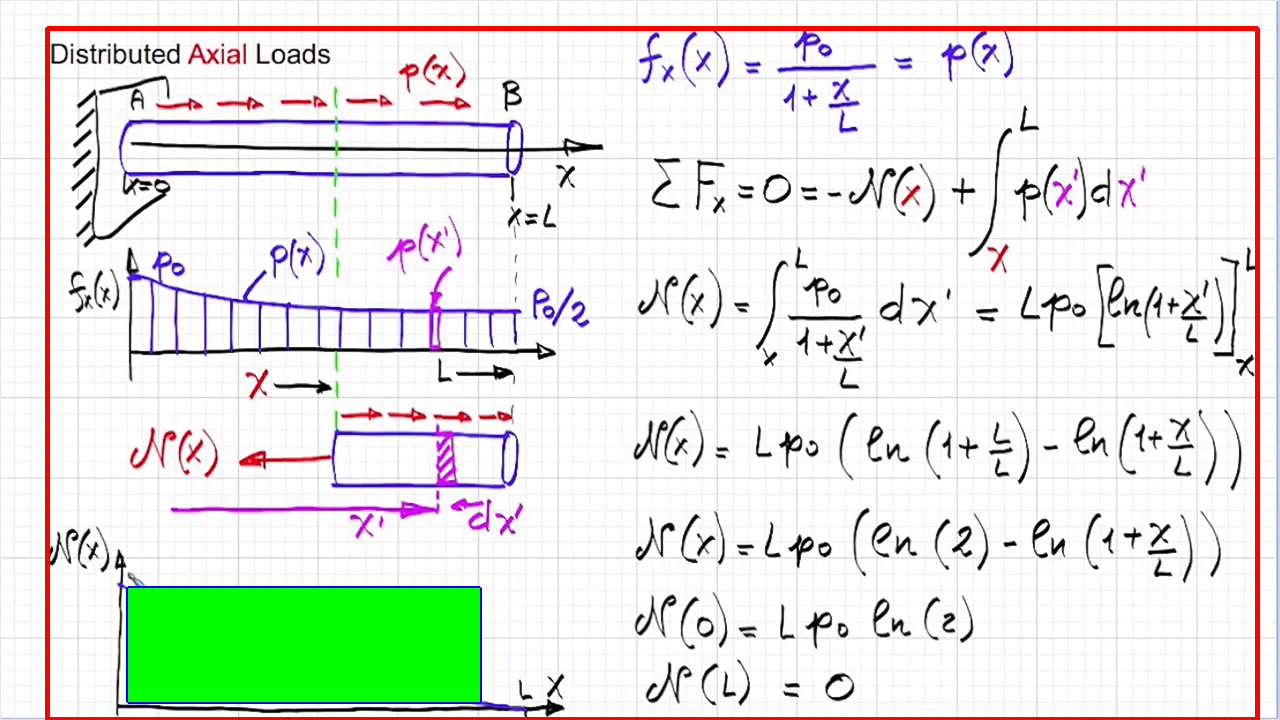 Distributed Axial Loads
p(x)
A
B
x=0
x
x=L
fₓ(x)
p₀
p(x)
p(x')
p₀/2
x
L
N(x)
x'
dx'
N(x)
L x
fₓ(x) = p₀ / (1 + x/L) = p(x)
ΣFₓ = 0 = -N(x) + ∫ₓᴸ p(x')dx'
N(x) = ∫ₓᴸ p₀ / (1 + x'/L) dx' = Lp₀ [ln(1 + x'/L)]ₓᴸ
N(x) = Lp₀ (ln(1 + L/L) - ln(1 + x/L))
N(x) = Lp₀ (ln(2) - ln(1 + x/L))
N(0) = Lp₀ ln(2)
N(L) = 0